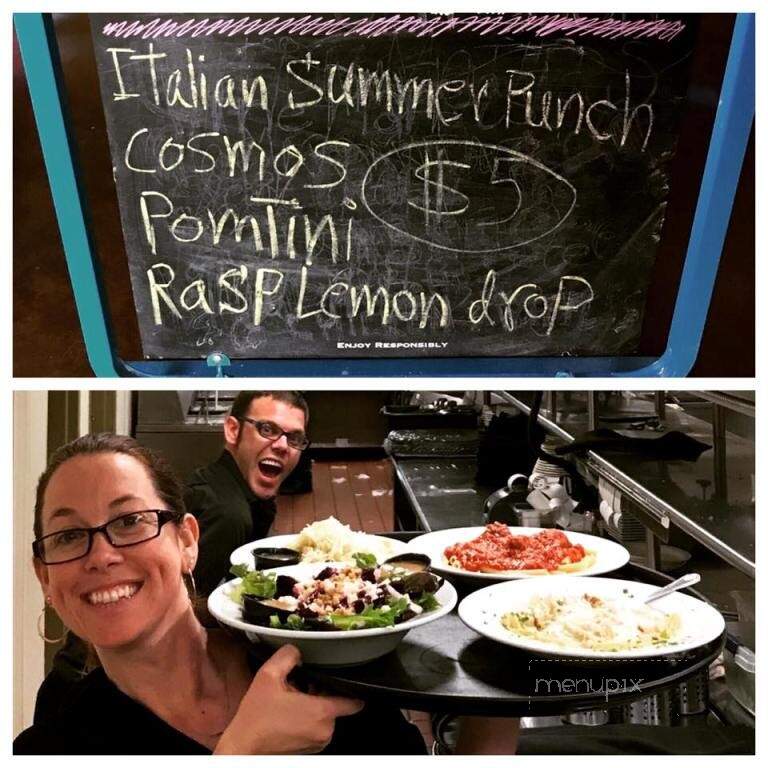 Italian Summer Punch
Cosmos $5
PomTini
RaSP Lemon drop
ENJOY RESPONSIBLY
menupix